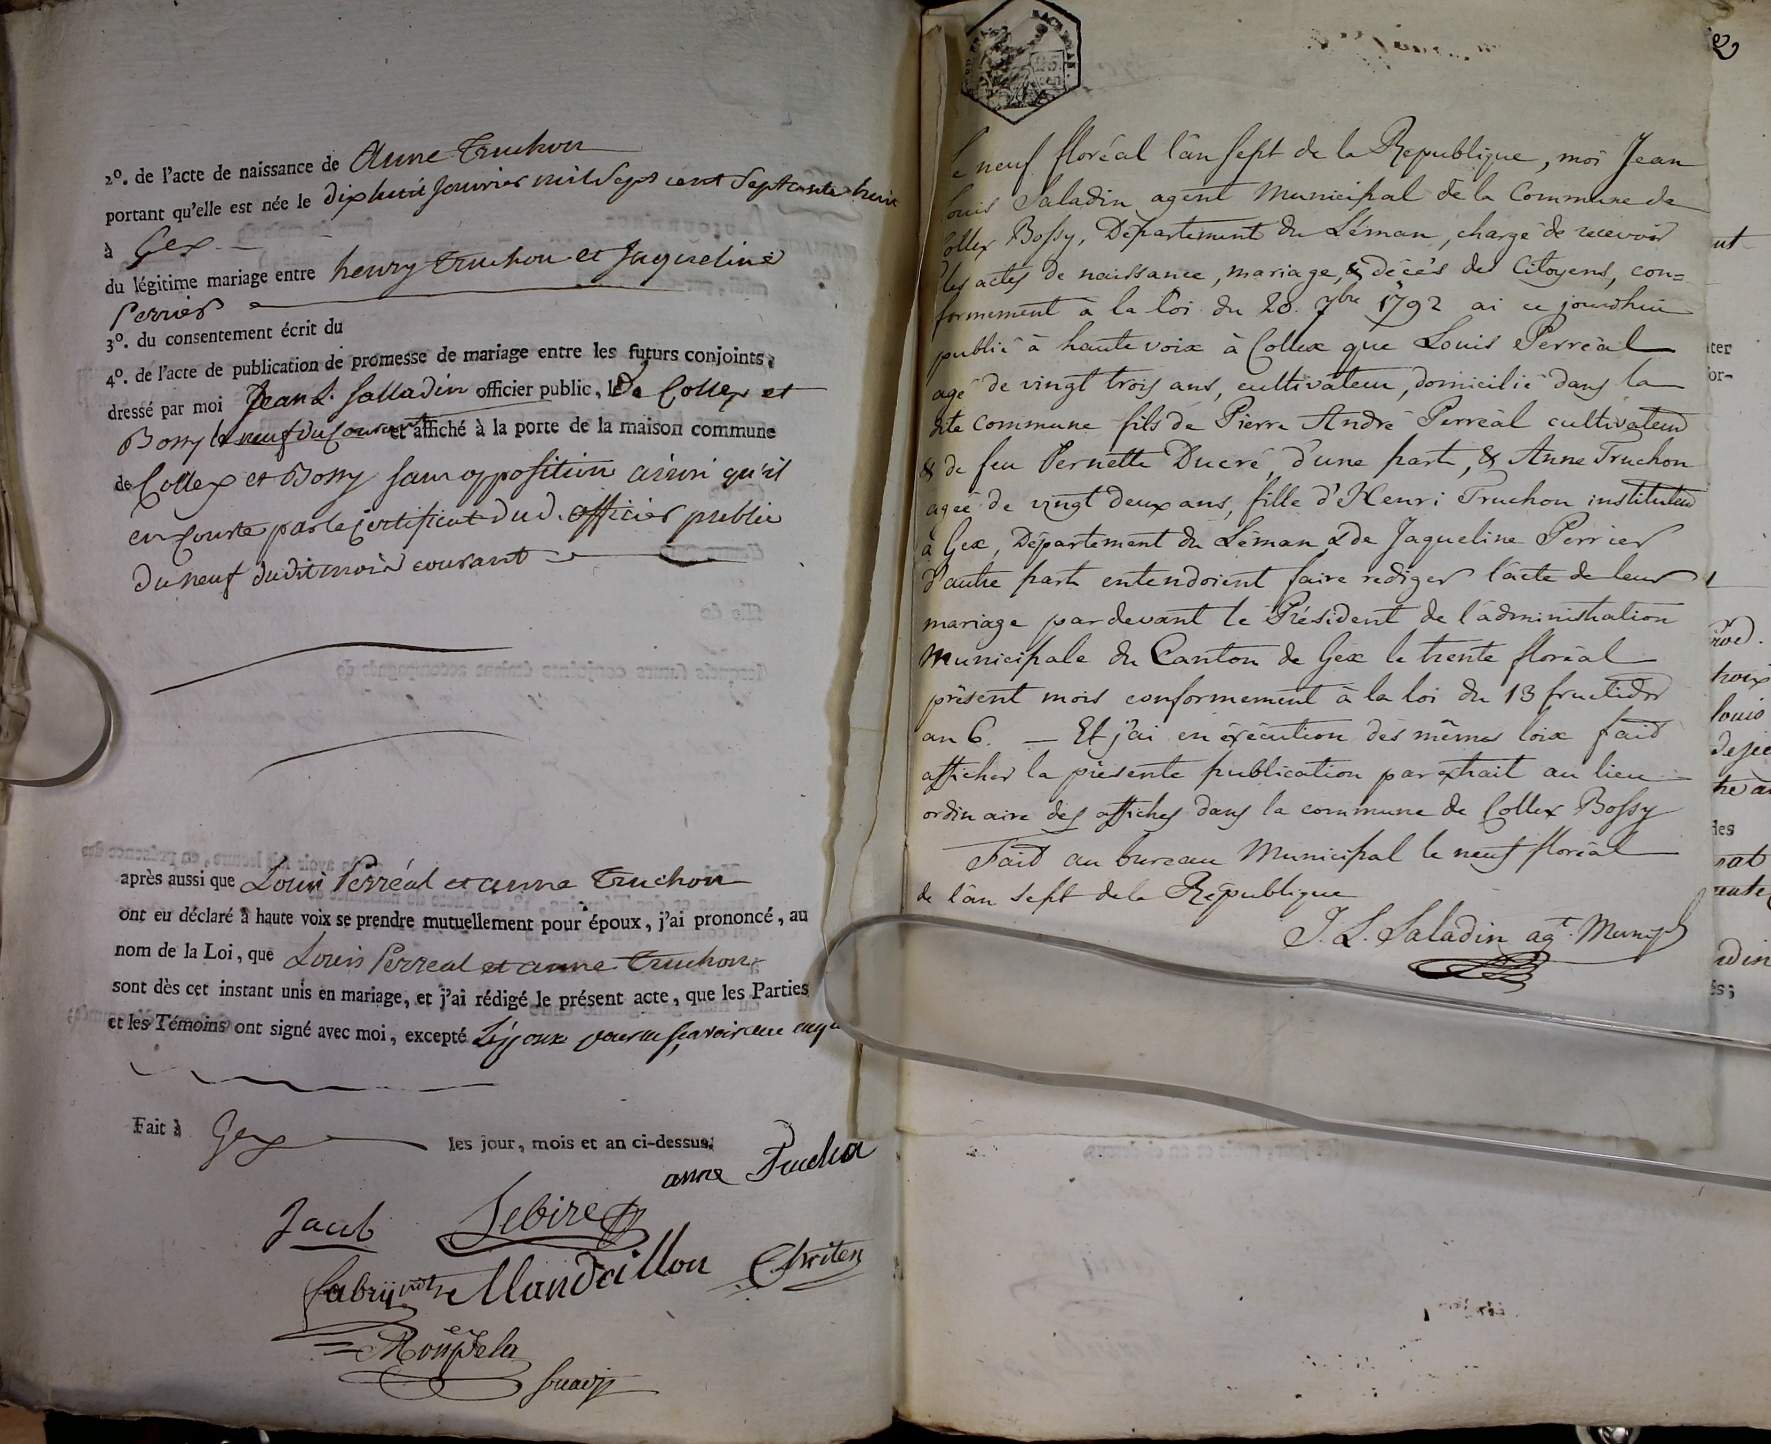 2º. de l'acte de naissance de Anne Truchon
portant qu'elle est née le dixhuit Janvier mil sept cent septante huit
à Gex
du légitime mariage entre henry Truchon et Jaqueline
Perrier
3º. du consentement écrit du
4º. de l'acte de publication de promesse de mariage entre les futurs conjoints,
dressé par moi Jean L. Salladin officier public, le De Collex et
Bossy le neuf du Courant et affiché à la porte de la maison commune
de Collex et Bossy sans opposition ainsi qu'il
en Conste par le Certificat dud. officier public
du neuf dudit mois courant
après aussi que Louis Perréal et anne Truchon
ont eu déclaré à haute voix se prendre mutuellement pour époux, j'ai prononcé, au
nom de la Loi, que Louis Perreal et anne Truchon
sont dès cet instant unis en mariage, et j'ai rédigé le présent acte, que les Parties
et les Témoins ont signé avec moi, excepté L'Epoux pour ne sçavoir
Fait à Gex les jour, mois et an ci-dessus;
anne Truchon
Jacob Lebire
Fabry Mandrillon
2
Le neuf floréal l'an sept de la Republique, moi Jean
Louis Saladin agent Municipal de la Commune de
Collex Bossy, Département du Léman, chargé de recevoir
les actes de naissance, mariage, & décés des Citoyens, con=
formément à la loi du 20. 7bre 1792 ai ce jourdhui
publié à haute voix à Collex que Louis Perréal
agé de vingt trois ans, cultivateur, domicilié dans la
dite commune fils de Pierre André Perréal cultivateur
& de feu Pernette Ducré, d'une part, & Anne Truchon
agée de vingt deux ans, fille d'Henri Truchon instituteur
à Gex, Département du Léman & de Jaqueline Perrier
d'autre part entendoient faire rediger l'acte de leur
mariage pardevant le Président de l'administration
Municipale du Canton de Gex le trente floréal
présent mois conformement à la loi du 13 fructidor
an 6. — Et j'ai en éxécution des mêmes loix fait
afficher la présente publication par extrait au lieu
ordinaire des affiches dans la commune de Collex Bossy
Fait au bureau Municipal le neuf floréal
de l'an sept de la République
J. L. Saladin agt. Munipl